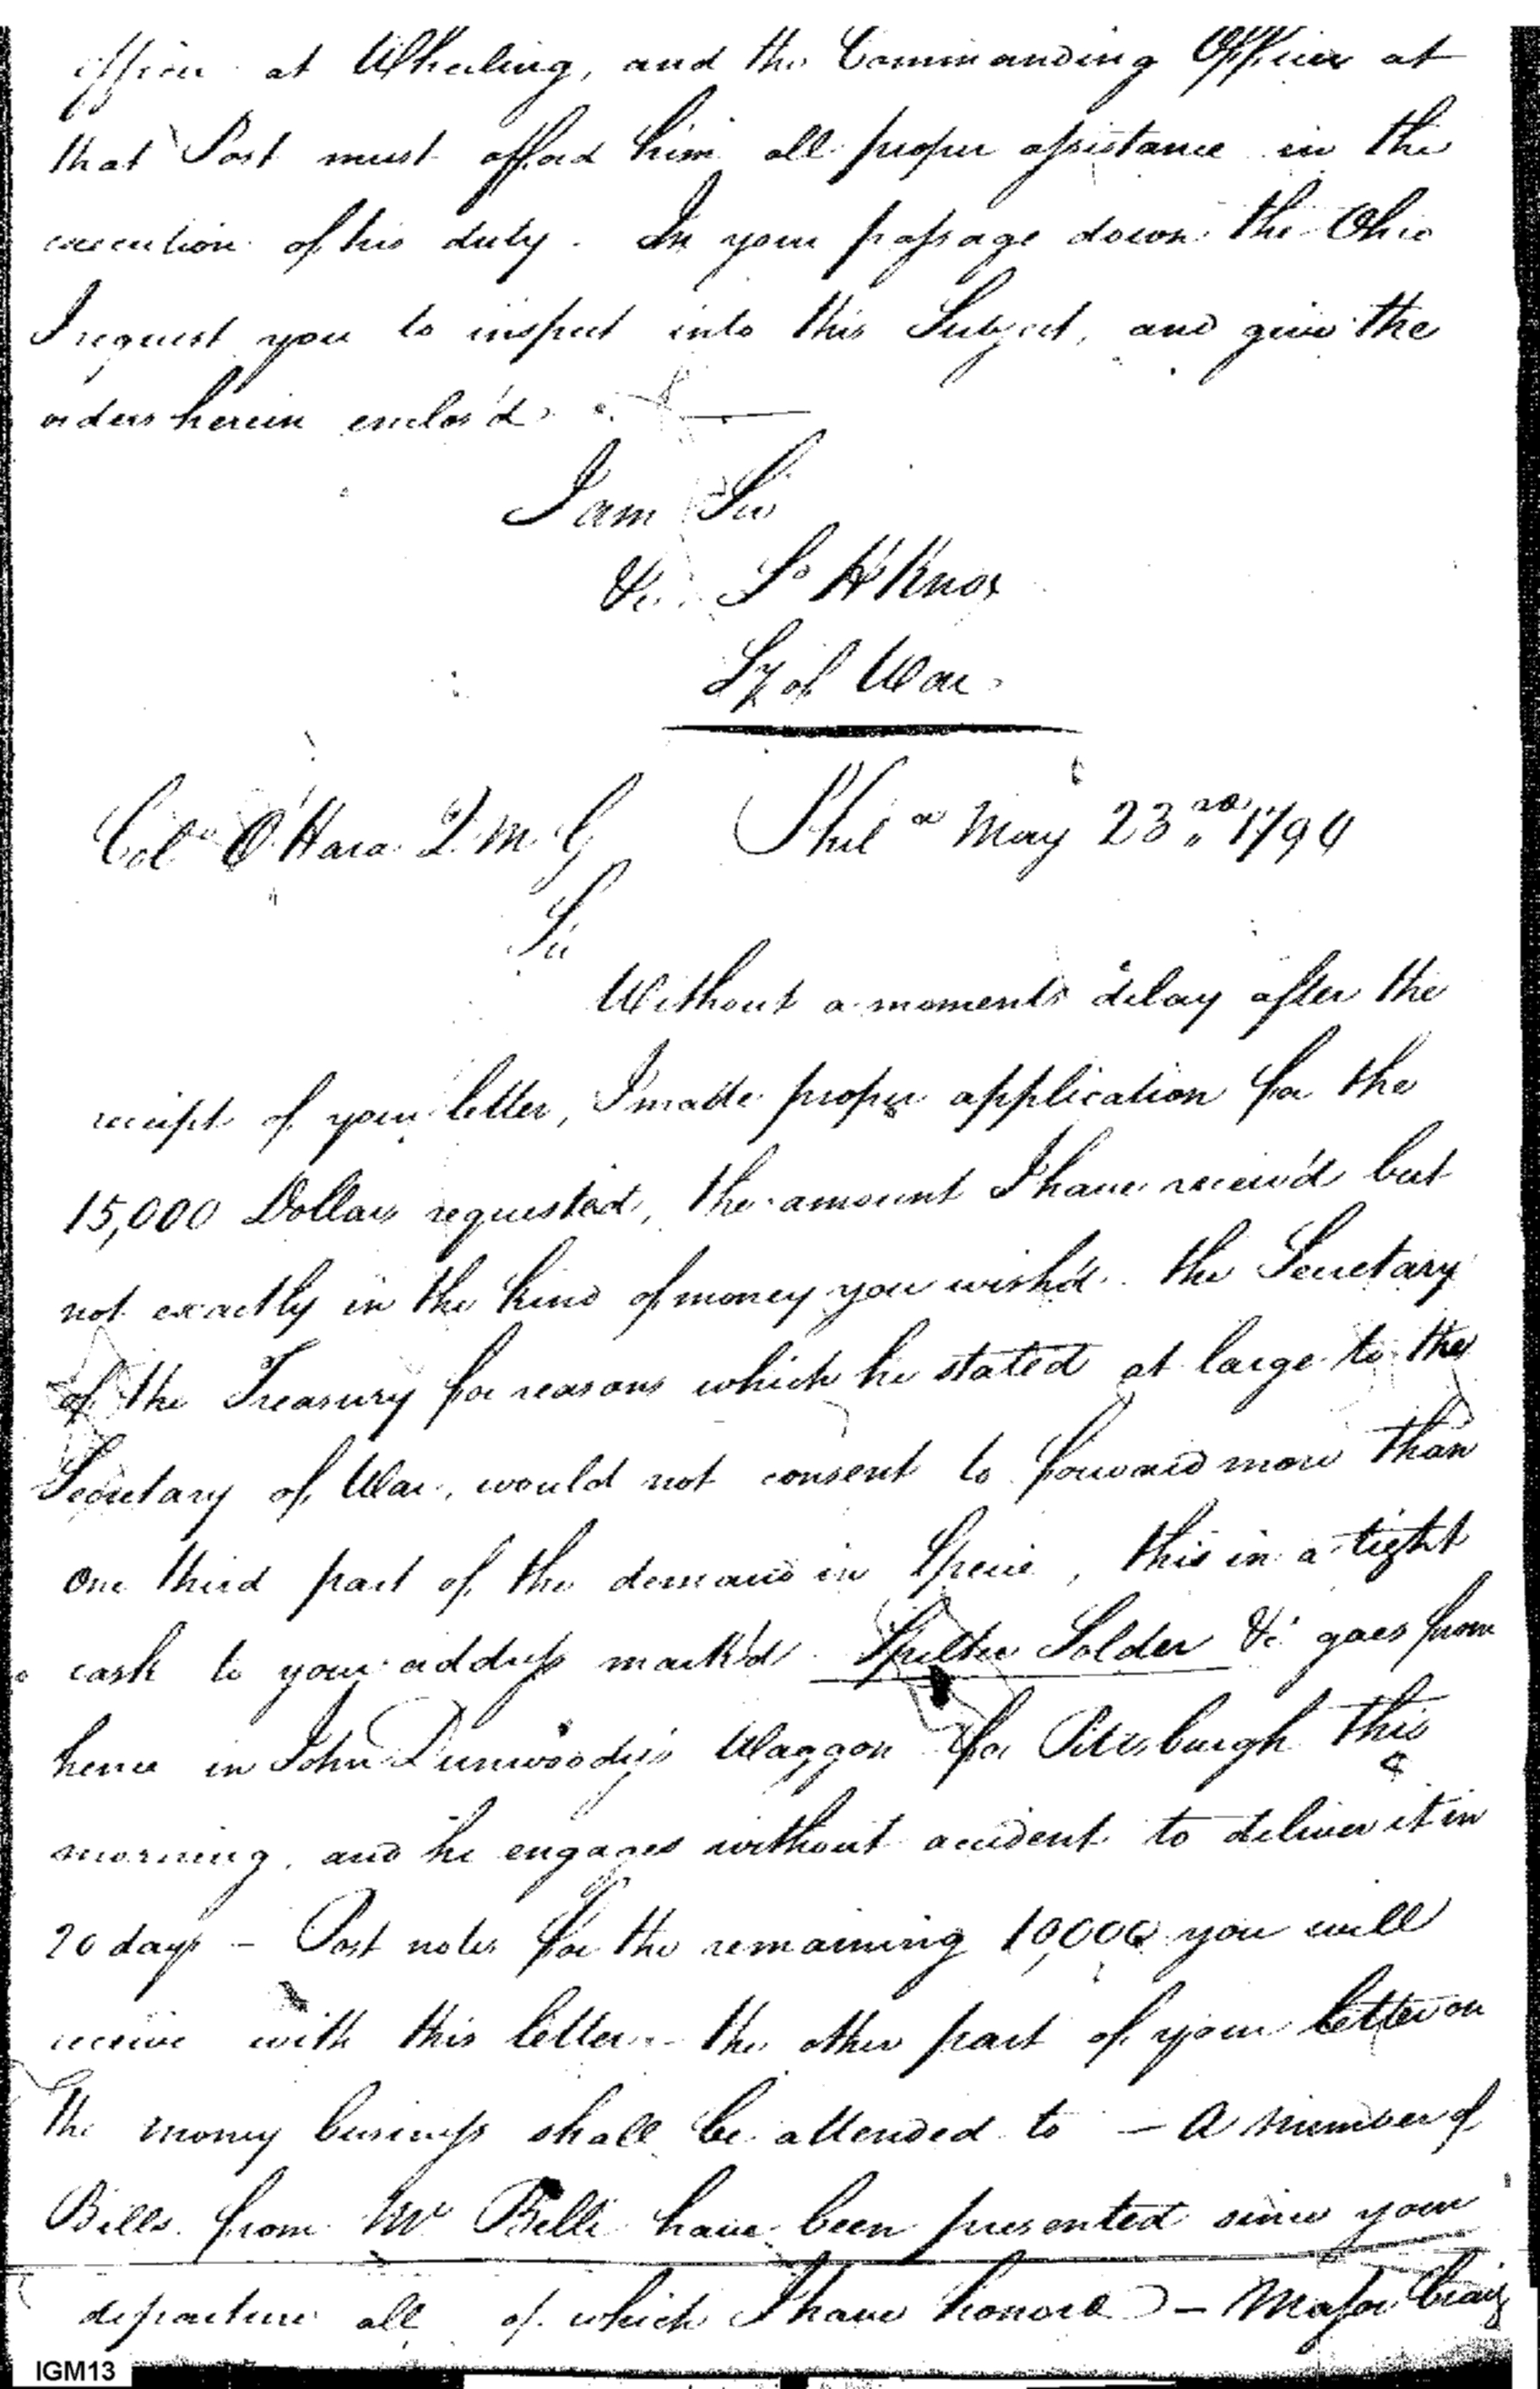 officer at Wheeling, and the Commanding Officer at
that Post must afford him all proper assistance in the
execution of his duty. In your passage down the Ohio
I request you to inspect into this Subject, and give the
orders herein enclos'd.
I am Sir
&c. Sd H Knox
Sy of War
Colo. O'Hara Q. M. G Phila May 23rd 1794
Sir
Without a moments delay after the
receipt of your letter, I made proper application for the
15,000 Dollars requested, the amount I have receiv'd but
not exactly in the kind of money you wish'd. the Secretary
of the Treasury for reasons which he stated at large to the
Secretary of War, would not consent to forward more than
one third part of the demand in Specie, this in a tight
cask to your address mark'd Spelter Solder &c. goes from
hence in John Dunwoody's Waggon for Pittsburgh this
morning, and he engages without accident to deliver it in
20 days - Post notes for the remaining 10,000 you will
receive with this letter - the other part of your letter on
the money business shall be attended to - A number of
Bills from Mr Belli have been presented since your
departure all of which I have honored - Major Craig
IGM13